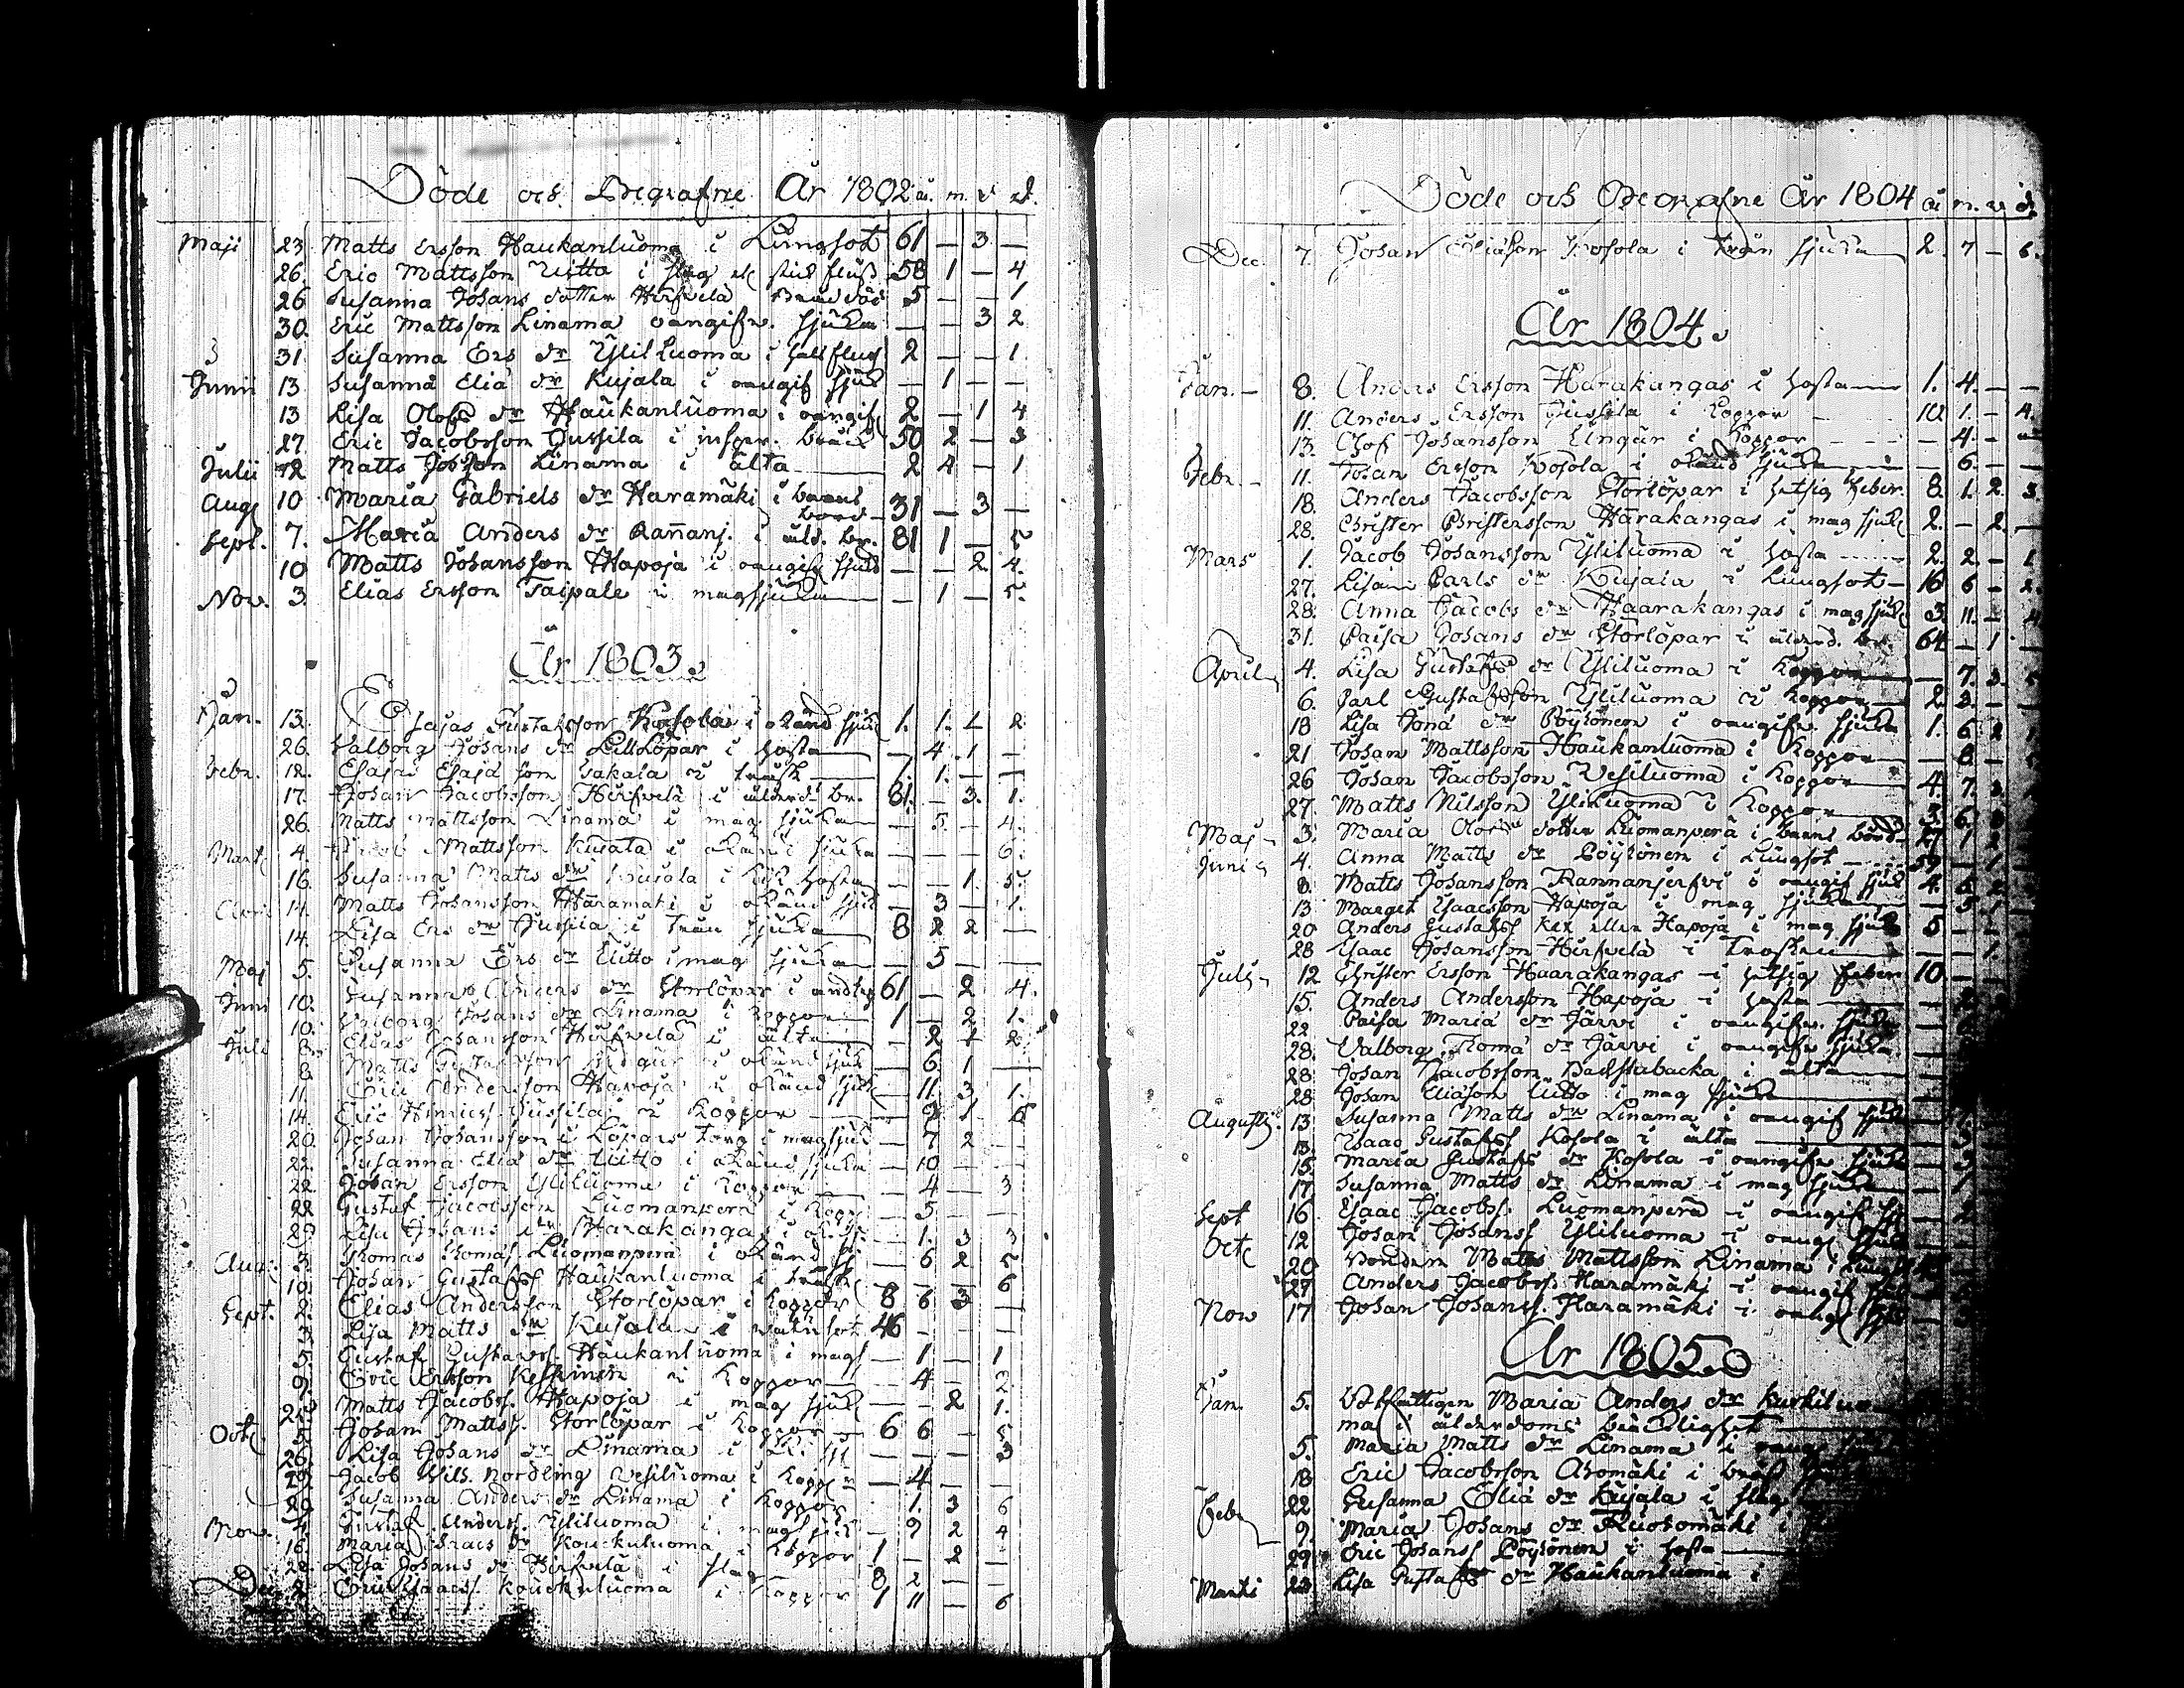 Döde och Begrafne År 1802 år. m. v. d.
Maji 23 Matts Ersson Haukanluoma i Lungsot 61 — 3 —
26. Eric Mattsson Uitto i flug 58 1 — 4
26 Susanna Johans dotter Hirfvelä 5 — — 1
30. Eric Mattsson Linama oangifv. sjukn — — 3 2
31. Susanna Ers dr Ylilluoma i 2 — — 1
Junii 13 Susanna Eliä dr Kujala i oangif sjuk — 1 — —
13 Lisa Olofs dr Haukanluoma i oangif 2 — 1 4
27. Eric Jacobsson Jussila i 50 2 — 3
Julii 12 Matts Linama i älta 2 4 — 1
Aug 10 Maria Gabriels dr Haramäki i barns börd 31 — 3 —
Sept. 7. Maria Anders dr Rañanj. i åld. br. 81 1 — 5
10 Matts Johansson Hapoja i oangif sjukd — — 2 4.
Nov. 3 Elias Ersson Taipale i magsjukan — 1 — 5.
År 1803.
Jan. 13. Esajas Gustafsson Kosola i okänd sjuk 1. 1. 1 2
26. Valborg Johans dr LillLöpar i hosta — 4 1 —
Febr. 12. Esajas Esajä son i trosk — 1. — —
17. Johan Jacobsson Hirfvelä i ålderd. br. 81. — 3. 1.
26. Matts Mattsson Linama i mag sjukan — 5. — 4.
Mart. 4. Mattsson Kujala i okänd sjukn — — — 6.
16. Susanna Matts dr Kujala i kik hosta — — 1. 5.
April 14. Matts Johansson Haramäki i okänd sjuk — 3 — 1.
14. Lisa Ers dr Jussila i trån sjukan 8 2 2 —
Maj 5. Susanna Ers dr Uitto i mag sjukan — 5 — —
Juni 10. Susanna Anders dr Storlöpar i 61 — 2 4.
10. Valborg Johans dr Linama i koppor 1 — 2 1.
Juli 8. Elias Johansson Hirfvelä i älta — 2 1 2
8 Matts Gustafsson i okänd sjuk — 6 1 —
11. Eric Andersson Hapoja i okänd sjuk — 11. 3 1.
14. Eric Jussila i Koppor — 9 1 6
20. Johan Johansson i Löpars torp i magsjuk — 7 2 —
22. Susanna Eliä dr Uitto i okänd sjukn — 10 — —
22 Johan Ersson Ylilluoma i koppor — 4 — 3
22 Gustaf Jacobsson Luomanperä i kopp — 5 — —
29. Lisa Johans dr Harakangas i — 1. 3 3
Aug. 3. Thomas Thomas. Luomanperä i okänd sj. — 6 2 5
10. Johan Gustafss Haukanluoma i trosk — — — 6
Sept. 2. Elias Andersson Storlöpar i koppor 8 6 3 —
3. Lisa Matts dr Kujala i vatusot 46 — — —
5. Gustaf Gustavss. Haukanluoma i mags — 1 — 1
9. Eric Ersson Keskinen i koppor — 4 — 2
25. Matts Jacobss. Hapoja i mag sjuk — — 2 1.
Oct. 5. Johan Mattss. Storlöpar i koppor 6 6 — 5
26. Lisa Johans dr Linama i — — — 3
29. Jacob Wilh. Nordling Vesiluoma i kopp — 4 — —
29. Susanna Anders dr Linama i Koppor 1. 3 6
Nov. Gustaf Anderss. Ylilluoma i magsjuk — 9 2 4
16. Maria Isacs dr Koukuluoma i koppor 1 — 2 —
22. Lisa Johans dr Hirfvelä i flug 8 2 — —
Dec. 2. Eric Isaacss. Koukuluoma i koppor 1 11 — 6
Döde och Begrafne År 1804 år m. v. d.
Dec. 7. Johan Eliäson Kosola i trån sjukan 2. 7 — 6.
År 1804.
Jan. — 8. Anders Ersson Harakangas i hosta 1. 4. — —
11. Anders Ersson Jussila i Koppor 10 1. — 4.
13. Olof Johansson Ungar i Koppor — 4. —
Febr. — 11. Johan Ersson Kosola i okänd sjukan — 6. — —
18. Anders Jacobsson Storlöpar i hetsig feber 8. 1. 2. 3.
28. Christer Christersson Harakangas i mag sjuk 2. — 2. —
Mars 1. Jacob Johansson Ylilluoma i hosta 2. 2. — 1
27. Lisa Carls dr Kujala i Lungsot — 16 6 — 2.
28. Anna Jacobs dr Haarakangas i mag sjuk 3 11. — 4
31. Caisa Johans dr Storlöpar i ålderd. br 64 — 1 —
April 4. Lisa Gustafs dr Ylilluoma i Koppor — 7. 3.
6. Carl Gustafsson Ylilluoma i Koppor 2. 3. —
18 Lisa Jonä dr Pöyhönen i oangifv. sjukn 1. 6 2
21 Johan Mattsson Haukanluoma i Koppor — 8 —
26 Johan Jacobsson Vesiluoma i Koppor 4. 7. 2.
27. Matts Nilsson Ylilluoma i Koppor 3. 6.
Maj — 3. Maria dotter Luomanperä i barns börd 27 1 2
Juni 4. Anna Matts dr Pöyhönen i Lungsot 59 — 1.
8. Matts Johansson Rannanjerfvi i oangif sjuk 4. 6 2
13 Marget Isaacsson Hapoja i mag sjukan — 5 1
20 Anders Gustafss Hapoja i mag sjuk 5 — —
28 Isaac Johansson Hirfvelä i Trosken — — 1.
Juli 12 Christer Ersson Haarakangas i hetsig feber 10 —
15. Anders Andersson Hapoja i hosta
22 Caisa Maria dr Järvi i oangifv. sjukn
28. Valborg Thomä dr Järvi i oangifv. sjukn
28 Johan Jacobsson Backstubacka i älta
28 Johan Eliäson Uitto i mag sjukan
Augusti. 13 Susanna Matts dr Linama i oangif sjuk
13. Isaac Gustafss Kosola i älta
15. Maria Gustafs dr Kosola i oangifv. sjukn
17 Susanna Matts dr Linama i mag sjukan
Sept 16 Isaac Jacobss. Luomanperä i oangif sj
Oct 12 Johan Johanss Ylilluoma i oang. sjuk
20 Bonden Matts Mattsson Linama i Lungs
27 Anders Jacobss. Haramäki i oangif sjuk
Nov 17 Johan Johanss. Haramäki i oang. sjuk
År 1805.
Jan. 5. Utfattigen Maria Anders dr Kurkiluo
ma i ålderdoms bräcklighet
5. Maria Matts dr Linama i oang
18 Eric Jacobsson Ahomäki i bröst
22 Susanna Eliä dr Kujala i flug
Febr 9. Maria Johans dr Ruohomäki i
29. Eric Johanss Pöyhönen i hosta
Martii 23 Lisa Gustafs dr Haukanluoma i